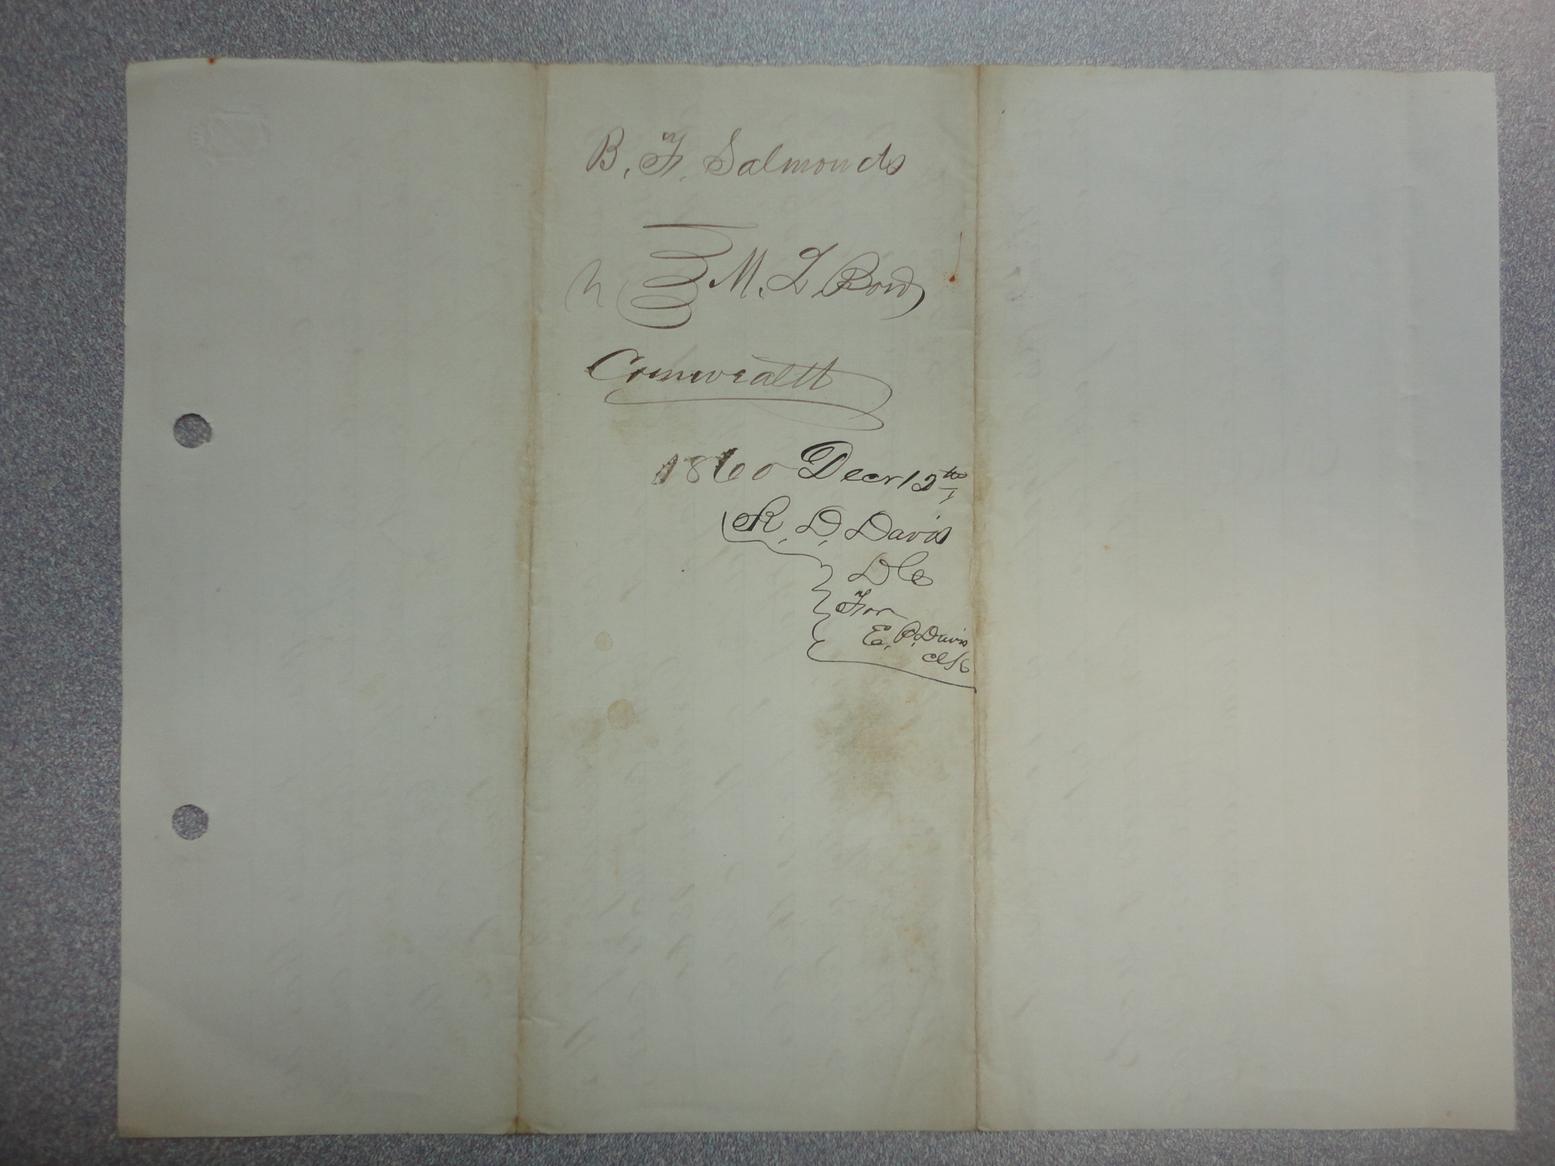 B. F. Salmonds
M. L Bond
Comwealth
1860 Decr 12th
R. D. Davis
DC
For
E. P. Davis
Clk